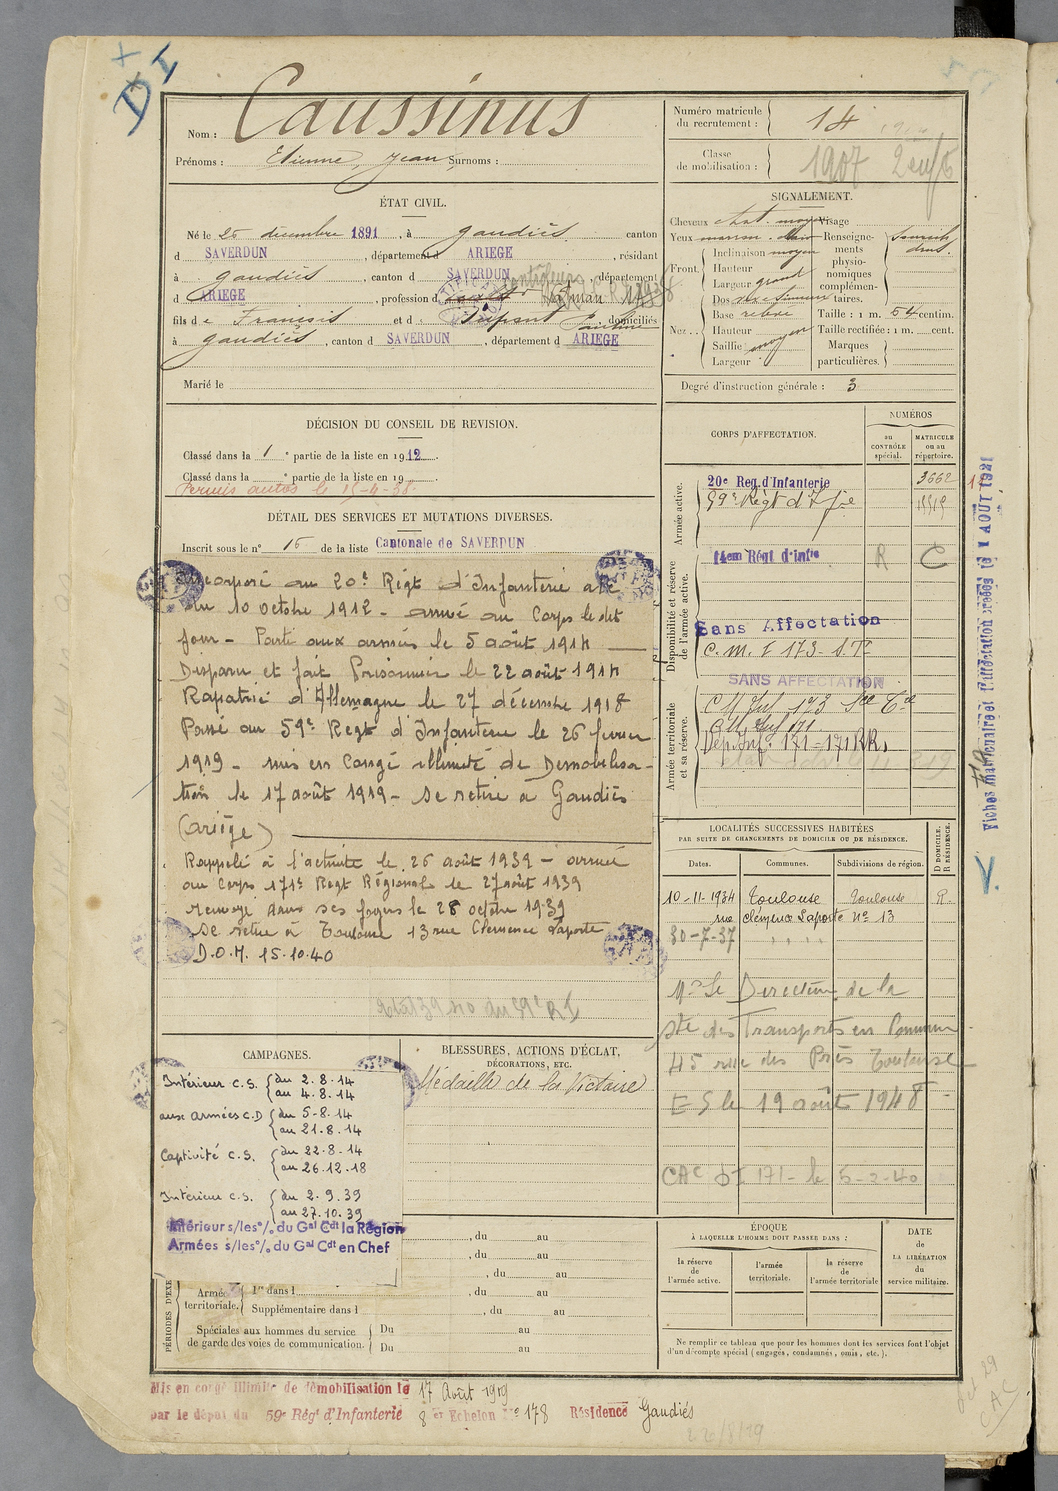 DI
Nom : Caussinus
Prénoms : Etienne, Jean Surnoms :
Numéro matricule du recrutement : 14
Classe de mobilisation : 1907
ÉTAT CIVIL.
Né le 25 décembre 1891, à Gaudiès canton
d SAVERDUN, département d ARIEGE, résidant
à Gaudiès, canton d SAVERDUN, département
d ARIEGE, profession d
fils de François et d Dupont Pauline domiciliés
à Gaudiès, canton d SAVERDUN, département d ARIEGE
Marié le
SIGNALEMENT.
Cheveux chat. moyen Visage
Yeux marron clair
Front. Inclinaison moyen
Hauteur
Largeur grand
Nez. Dos
Base relevé
Hauteur
Saillie moyen
Largeur
Renseignements physionomiques complémentaires.
Taille : 1 m. 64 centim.
Taille rectifiée : 1 m. cent.
Marques particulières.
Degré d'instruction générale : 3
DÉCISION DU CONSEIL DE REVISION.
Classé dans la 1e partie de la liste en 1912.
Classé dans la e partie de la liste en 19
Permis autos le
DÉTAIL DES SERVICES ET MUTATIONS DIVERSES.
Inscrit sous le n° 16 de la liste Cantonale de SAVERDUN
Incorporé au 20e Régt d'Infanterie à
du 10 octobre 1912 - arrivé au Corps le dit
jour - Parti aux armées le 5 août 1914
Disparu et fait Prisonnier le 22 août 1914
Rapatrié d'Allemagne le 27 décembre 1918
Passé au 59e Regt d'Infanterie le 26 février
1919 - mis en Congé illimité de Démobilisa-
tion le 17 août 1919 - se retire à Gaudiès
(Ariège)
Rappelé à l'activité le 26 août 1939 - arrivé
au Corps 171e Regt Régional le 27 août 1939
renvoyé dans ses foyers le 28 octbre 1939
se retire à Toulouse 13 rue Clémence Laporte
D.O.M. 15.10.40
CORPS D'AFFECTATION.
NUMÉROS
au CONTRÔLE spécial.
MATRICULE ou au répertoire.
Armée active.
20e Reg. d'Infanterie 3662
59e Régt d'Infie
Disponibilité et réserve de l'armée active.
14em Régt d'Infie R C
Sans Affectation
C. M. I 173 - S.Te
Armée territoriale et sa réserve.
SANS AFFECTATION
CM Inf 173
CM Inf 171
Dep. Inf. 171 - 171 RR.
LOCALITÉS SUCCESSIVES HABITÉES
PAR SUITE DE CHANGEMENTS DE DOMICILE OU DE RÉSIDENCE.
Dates. Communes. Subdivisions de région. D DOMICILE. R RÉSIDENCE.
10-11-1934 Toulouse Toulouse R.
rue Clémence Laporte No 13
30-7-37
Mr Le Directeur de la
Sté des Transports en Commun
45 rue des Toulouse
ES le 19 août 1948
CAC DI 171 - le 5-2-40
CAMPAGNES.
Intérieur C.S. du 2.8.14
au 4.8.14
aux Armées C.D du 5-8-14
au 21.8.14
Captivité C.S. du 22.8.14
au 26.12.18
Intérieur C.S. du 2.9.39
au 27.10.39
Intérieur s/les % du Gal Cdt la Région
Armées s/les % du Gal Cdt en Chef
BLESSURES, ACTIONS D'ÉCLAT,
DÉCORATIONS, ETC.
Médaille de la Victoire
, du au
, du au
, du au
, du au
PÉRIODES D'EXE
Armée territoriale.
1re dans l
Supplémentaire dans l , du au
Spéciales aux hommes du service
de garde des voies de communication.
Du au
Du au
ÉPOQUE
À LAQUELLE L'HOMME DOIT PASSER DANS :
la réserve de l'armée active.
l'armée territoriale.
la réserve de l'armée territoriale
DATE de LA LIBÉRATION du service militaire.
Ne remplir ce tableau que pour les hommes dont les services font l'objet
d'un décompte spécial (engagés, condamnés, omis, etc.).
Mis en congé illimité de démobilisation le 17 Août 1919
par le dépôt du 59e Régt d'Infanterie 8e Echelon No 178 Résidence Gaudiès